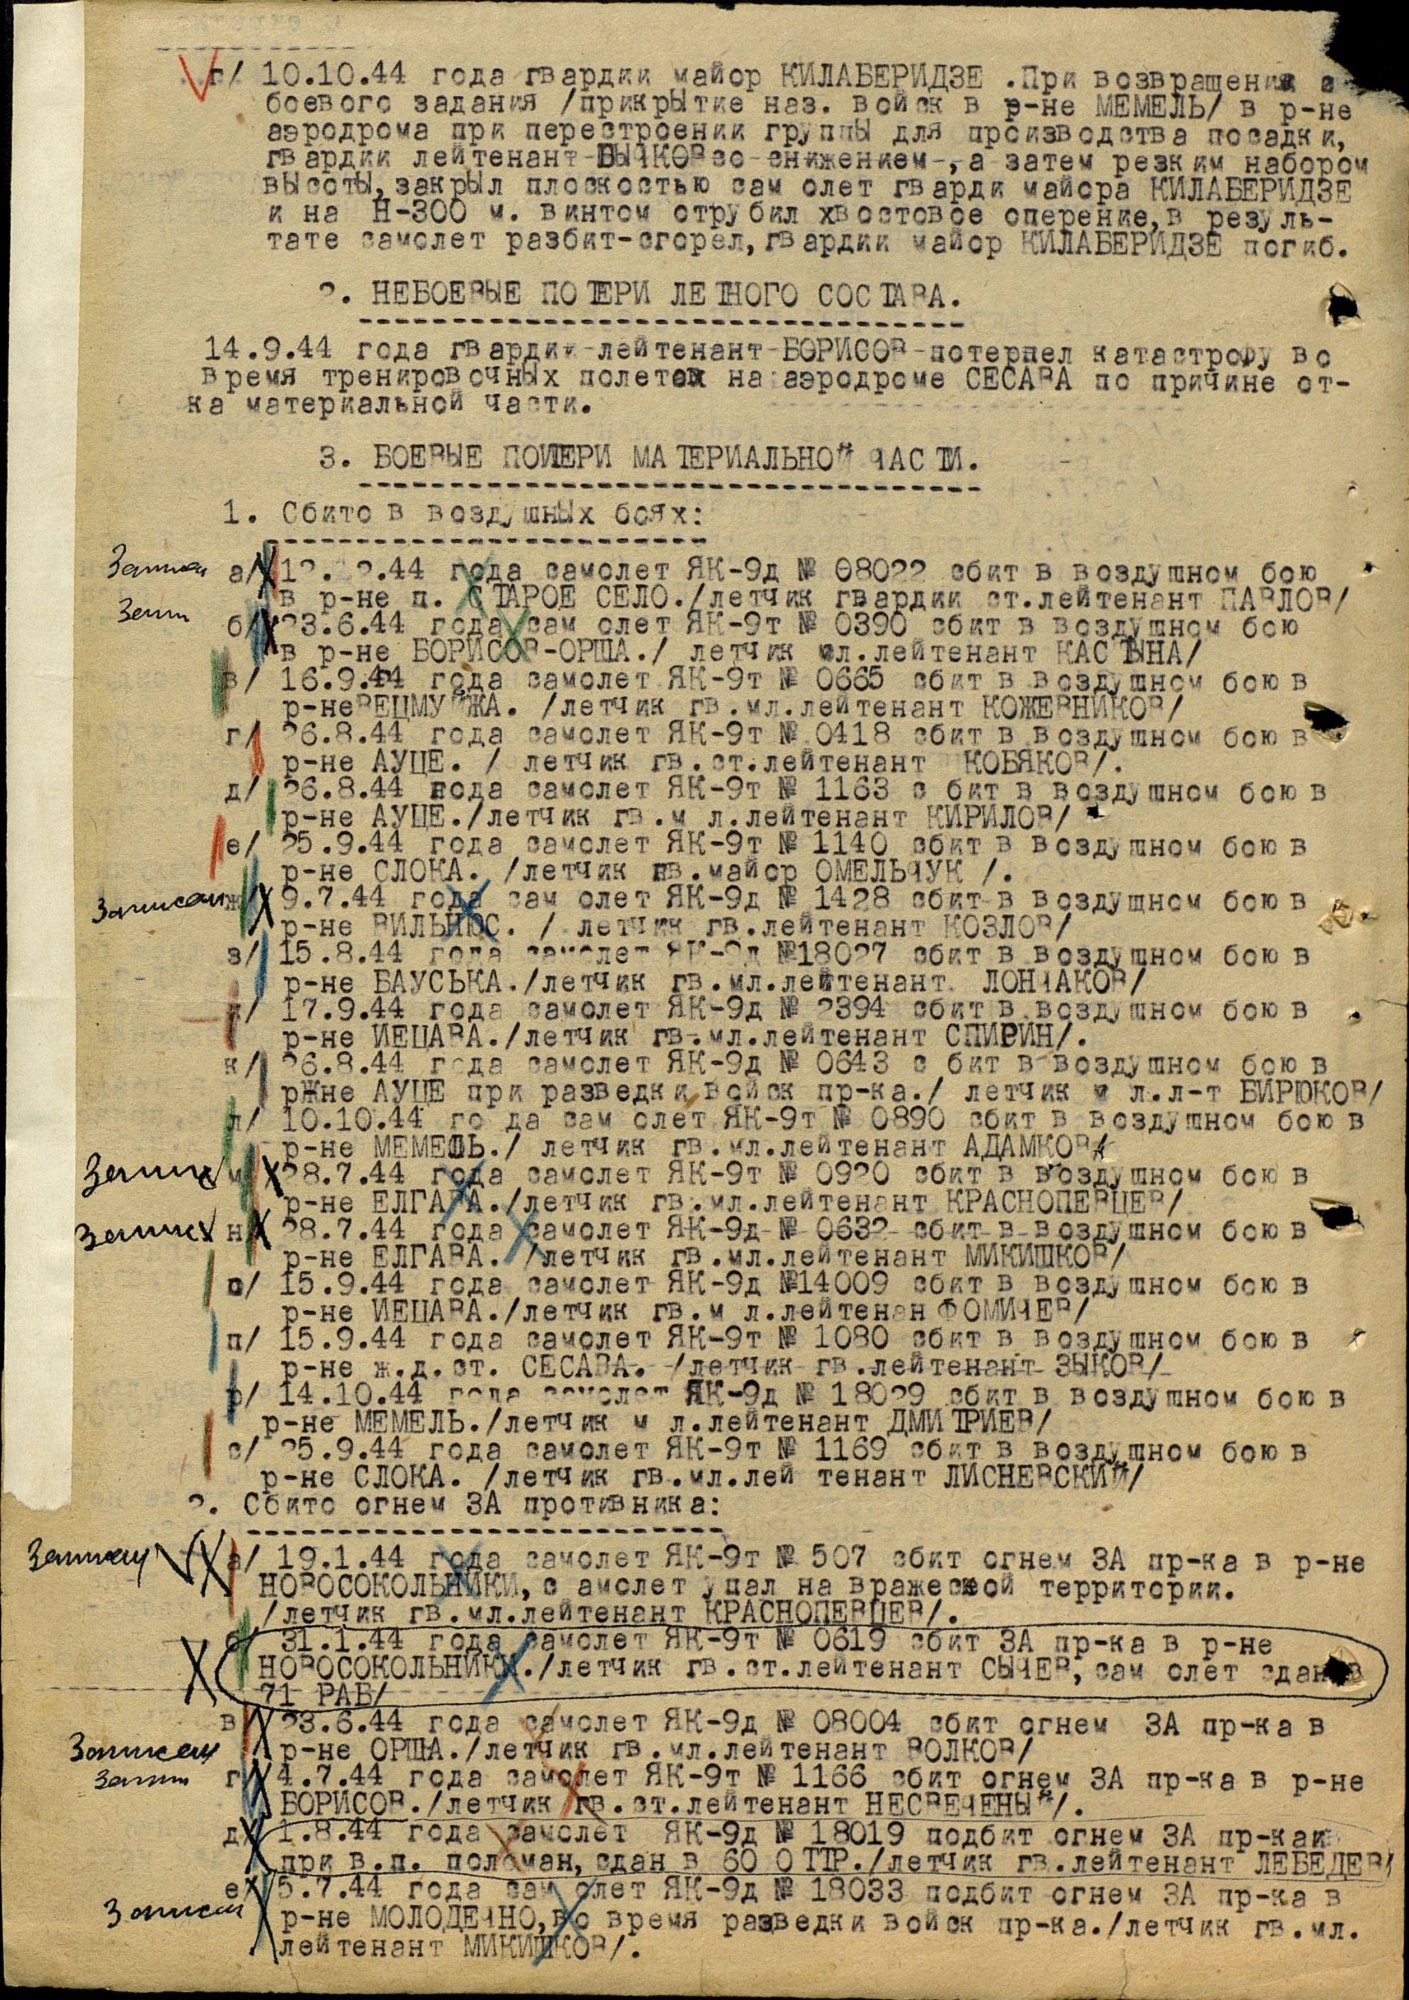 г/ 10.10.44 года гвардии майор КИЛАБЕРИДЗЕ .При возвращении с
боевого задания /прикрытие наз. войск в р-не МЕМЕЛЬ/ в р-не
аэродрома при перестроении группы для производства посадки,
гвардии лейтенант БЫЧКОВ со снижением , а затем резким набором
высоты, закрыл плоскостью сам олет гварди майора КИЛАБЕРИДЗЕ
и на Н-300 м. винтом отрубил хвостовое оперение, в резуль-
тате самолет разбит-сгорел, гвардии майор КИЛАБЕРИДЗЕ погиб.
2. НЕБОЕВЫЕ ПОТЕРИ ЛЕТНОГО СОСТАВА.
14.9.44 года гвардии лейтенант БОРИСОВ потерпел катастрофу во
время тренировочных полетов на аэродроме СЕСАВА по причине от-
ка материальной части.
3. БОЕВЫЕ ПОТЕРИ МАТЕРИАЛЬНОЙ ЧАСТИ.
1. Сбито в воздушных боях:
Записан а/ .44 года самолет ЯК-9д № 08022 сбит в воздушном бою
в р-не п. СТАРОЕ СЕЛО./летчик гвардии ст.лейтенант ПАВЛОВ/
б/ 23.6.44 года сам олет ЯК-9т № 0390 сбит в воздушном бою
в р-не БОРИСОВ-ОРША./ летчик мл.лейтенант КАСТЫНА/
в/ 16.9.44 года самолет ЯК-9т № 0665 сбит в воздушном бою в
р-не ВЕЦМУЙЖА. /летчик гв.мл.лейтенант КОЖЕВНИКОВ/
г/ 26.8.44 года самолет ЯК-9т № 0418 сбит в воздушном бою в
р-не АУЦЕ. / летчик гв.ст.лейтенант КОБЯКОВ/.
д/ 26.8.44 года самолет ЯК-9т № 1163 с бит в воздушном бою в
р-не АУЦЕ./летчик гв.м л.лейтенант КИРИЛОВ/
е/ 25.9.44 года самолет ЯК-9т № 1140 сбит в воздушном бою в
р-не СЛОКА. /летчик гв.майор ОМЕЛЬЧУК /.
Записан ж/ 9.7.44 года сам олет ЯК-9д № 1428 сбит в воздушном бою в
р-не ВИЛЬНЮС. / летчик гв.лейтенант КОЗЛОВ/
з/ 15.8.44 года самолет ЯК-9д №18027 сбит в воздушном бою в
р-не БАУСЬКА./летчик гв.мл.лейтенант ЛОНЧАКОВ/
и/ 17.9.44 года самолет ЯК-9д № 2394 сбит в воздушном бою в
р-не ИЕЦАВА./летчик гв.мл.лейтенант СПИРИН/.
к/ 26.8.44 года самолет ЯК-9д № 0643 с бит в воздушном бою в
р-не АУЦЕ при разведки войск пр-ка./ летчик м л.л-т БИРЮКОВ/
л/ 10.10.44 го да сам олет ЯК-9т № 0890 сбит в воздушном бою в
р-не МЕМЕЛЬ./ летчик гв.мл.лейтенант АДАМКОВ/
м/ 28.7.44 года самолет ЯК-9т № 0920 сбит в воздушном бою в
р-не ЕЛГАВА./летчик гв.мл.лейтенант КРАСНОПЕВЦЕВ/
н/ 28.7.44 года самолет ЯК-9д № 0632 сбит в воздушном бою в
р-не ЕЛГАВА. /летчик гв.мл.лейтенант МИКИШКОВ/
о/ 15.9.44 года самолет ЯК-9д №14009 сбит в воздушном бою в
р-не ИЕЦАВА./летчик гв.м л.лейтенан ФОМИЧЕВ/
п/ 15.9.44 года самолет ЯК-9т № 1080 сбит в воздушном бою в
р-не ж.д.ст. СЕСАВА. /летчик гв.лейтенант ЗЫКОВ/
р/ 14.10.44 года самолет ЯК-9д № 18029 сбит в воздушном бою в
р-не МЕМЕЛЬ./летчик м л.лейтенант ДМИТРИЕВ/
с/ 25.9.44 года самолет ЯК-9т № 1169 сбит в воздушном бою в
р-не СЛОКА. /летчик гв.мл.лей тенант ЛИСНЕВСКИЙ/
2. Сбито огнем ЗА противника:
Записан а/ 19.1.44 года самолет ЯК-9т № 507 сбит огнем ЗА пр-ка в р-не
НОВОСОКОЛЬНИКИ, с амолет упал на вражеской территории.
/летчик гв.мл.лейтенант КРАСНОПЕВЦЕВ/.
б/ 31.1.44 года самолет ЯК-9т № 0619 сбит ЗА пр-ка в р-не
НОВОСОКОЛЬНИКИ./летчик гв.ст.лейтенант СЫЧЕВ, сам олет сдан в
71 РАБ/
в/ 23.6.44 года самолет ЯК-9д № 08004 сбит огнем ЗА пр-ка в
Записан р-не ОРША./летчик гв.мл.лейтенант ВОЛКОВ/
г/ 4.7.44 года самолет ЯК-9т № 1166 сбит огнем ЗА пр-ка в р-не
БОРИСОВ./летчик гв.ст.лейтенант НЕСВЕЧЕНЫЙ/.
д/ 1.8.44 года самолет ЯК-9д № 18019 подбит огнем ЗА пр-ка
при в.п. поломан, сдан в 60 ОТТР./летчик гв.лейтенант ЛЕБЕДЕВ/
е/ 5.7.44 года сам олет ЯК-9д № 18033 подбит огнем ЗА пр-ка в
Записан р-не МОЛОДЕЧНО, во время разведки войск пр-ка./летчик гв.мл.
лейтенант МИКИШКОВ/.